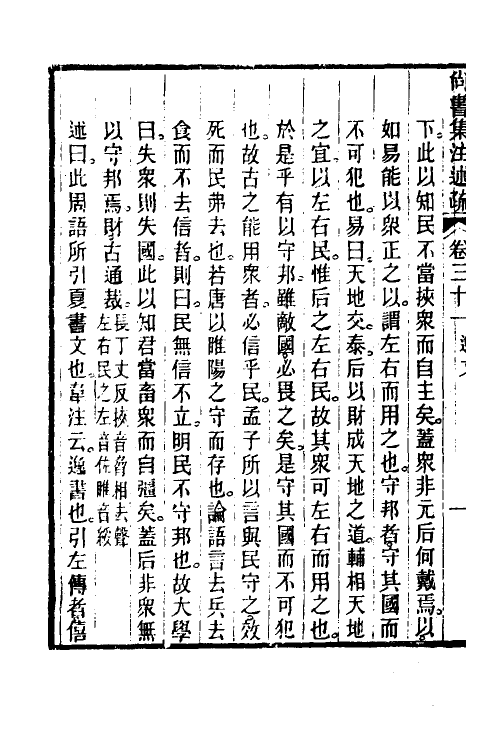 尚書集注述疏 卷三十一 逸文 一
下此以知民不當挾衆而自主矣蓋衆非元后何戴焉以
如易能以衆正之以謂左右而用之也守邦者守其國而
不可犯也易曰天地交泰后以財成天地之道輔相天地
之宜以左右民惟后之左右民故其衆可左右而用之也
於是乎有以守邦雖敵國必畏之矣是守其國而不可犯
也故古之能用衆者必信乎民孟子所以言與民守之效
死而民弗去也若唐以睢陽之守而存也論語言去兵去
食而不去信者則曰民無信不立明民不守邦也故大學
曰失衆則失國此以知君當畜衆而自彊矣蓋后非衆無
以守邦焉財古通裁長丁丈反挾音脅相去聲
左右民之左音佐睢音綏
述曰此周語所引夏書文也韋注云逸書也引左傳者僖